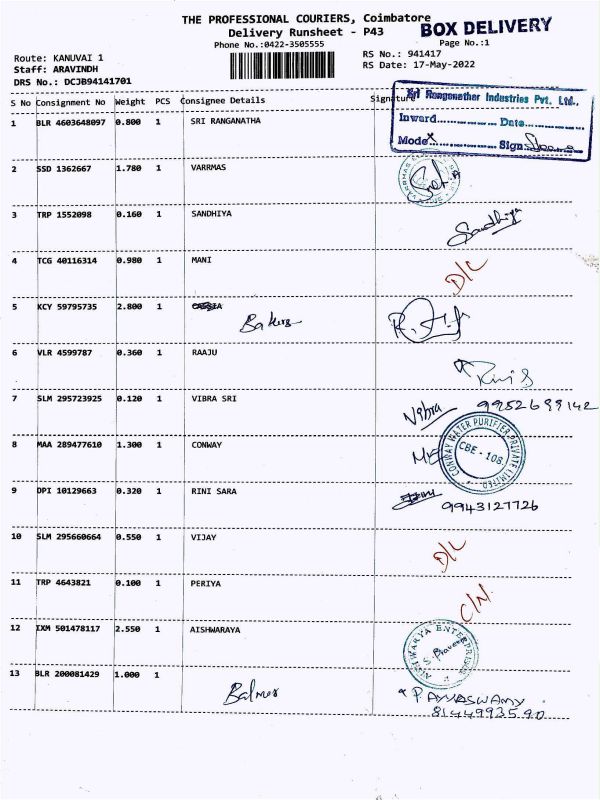 THE PROFESSIONAL COURIERS, Coimbatore
Delivery Runsheet - P43
BOX DELIVERY
Phone No.:0422-3505555
Page No.:1
Route: KANUVAI 1
RS No.: 941417
Staff: ARAVINDH
RS Date: 17-May-2022
DRS No.: DCJB94141701
S No Consignment No Weight PCS Consignee Details Signature
Sri Ranganathar Industries Pvt. Ltd.,
Inward............... Date...............
Mode............... Sign
1 BLR 4603648097 0.800 1 SRI RANGANATHA
2 SSD 1362667 1.780 1 VARRMAS
3 TRP 1552098 0.160 1 SANDHIYA Sandhiya
4 TCG 40116314 0.980 1 MANI D/C
5 KCY 59795735 2.800 1
Bakers
6 VLR 4599787 0.360 1 RAAJU
7 SLM 295723925 0.120 1 VIBRA SRI Vibra 9952699142
8 MAA 289477610 1.300 1 CONWAY
CONWAY WATER PURIFIER PRIVATE LIMITED
CBE - 108.
9 DPI 10129663 0.320 1 RINI SARA
9943127726
10 SLM 295660664 0.550 1 VIJAY D/L
11 TRP 4643821 0.100 1 PERIYA C/N
12 IXM 501478117 2.550 1 AISHWARAYA
AISHWARYA ENTERPRISES
13 BLR 200081429 1.000 1
Balmer
8144993590